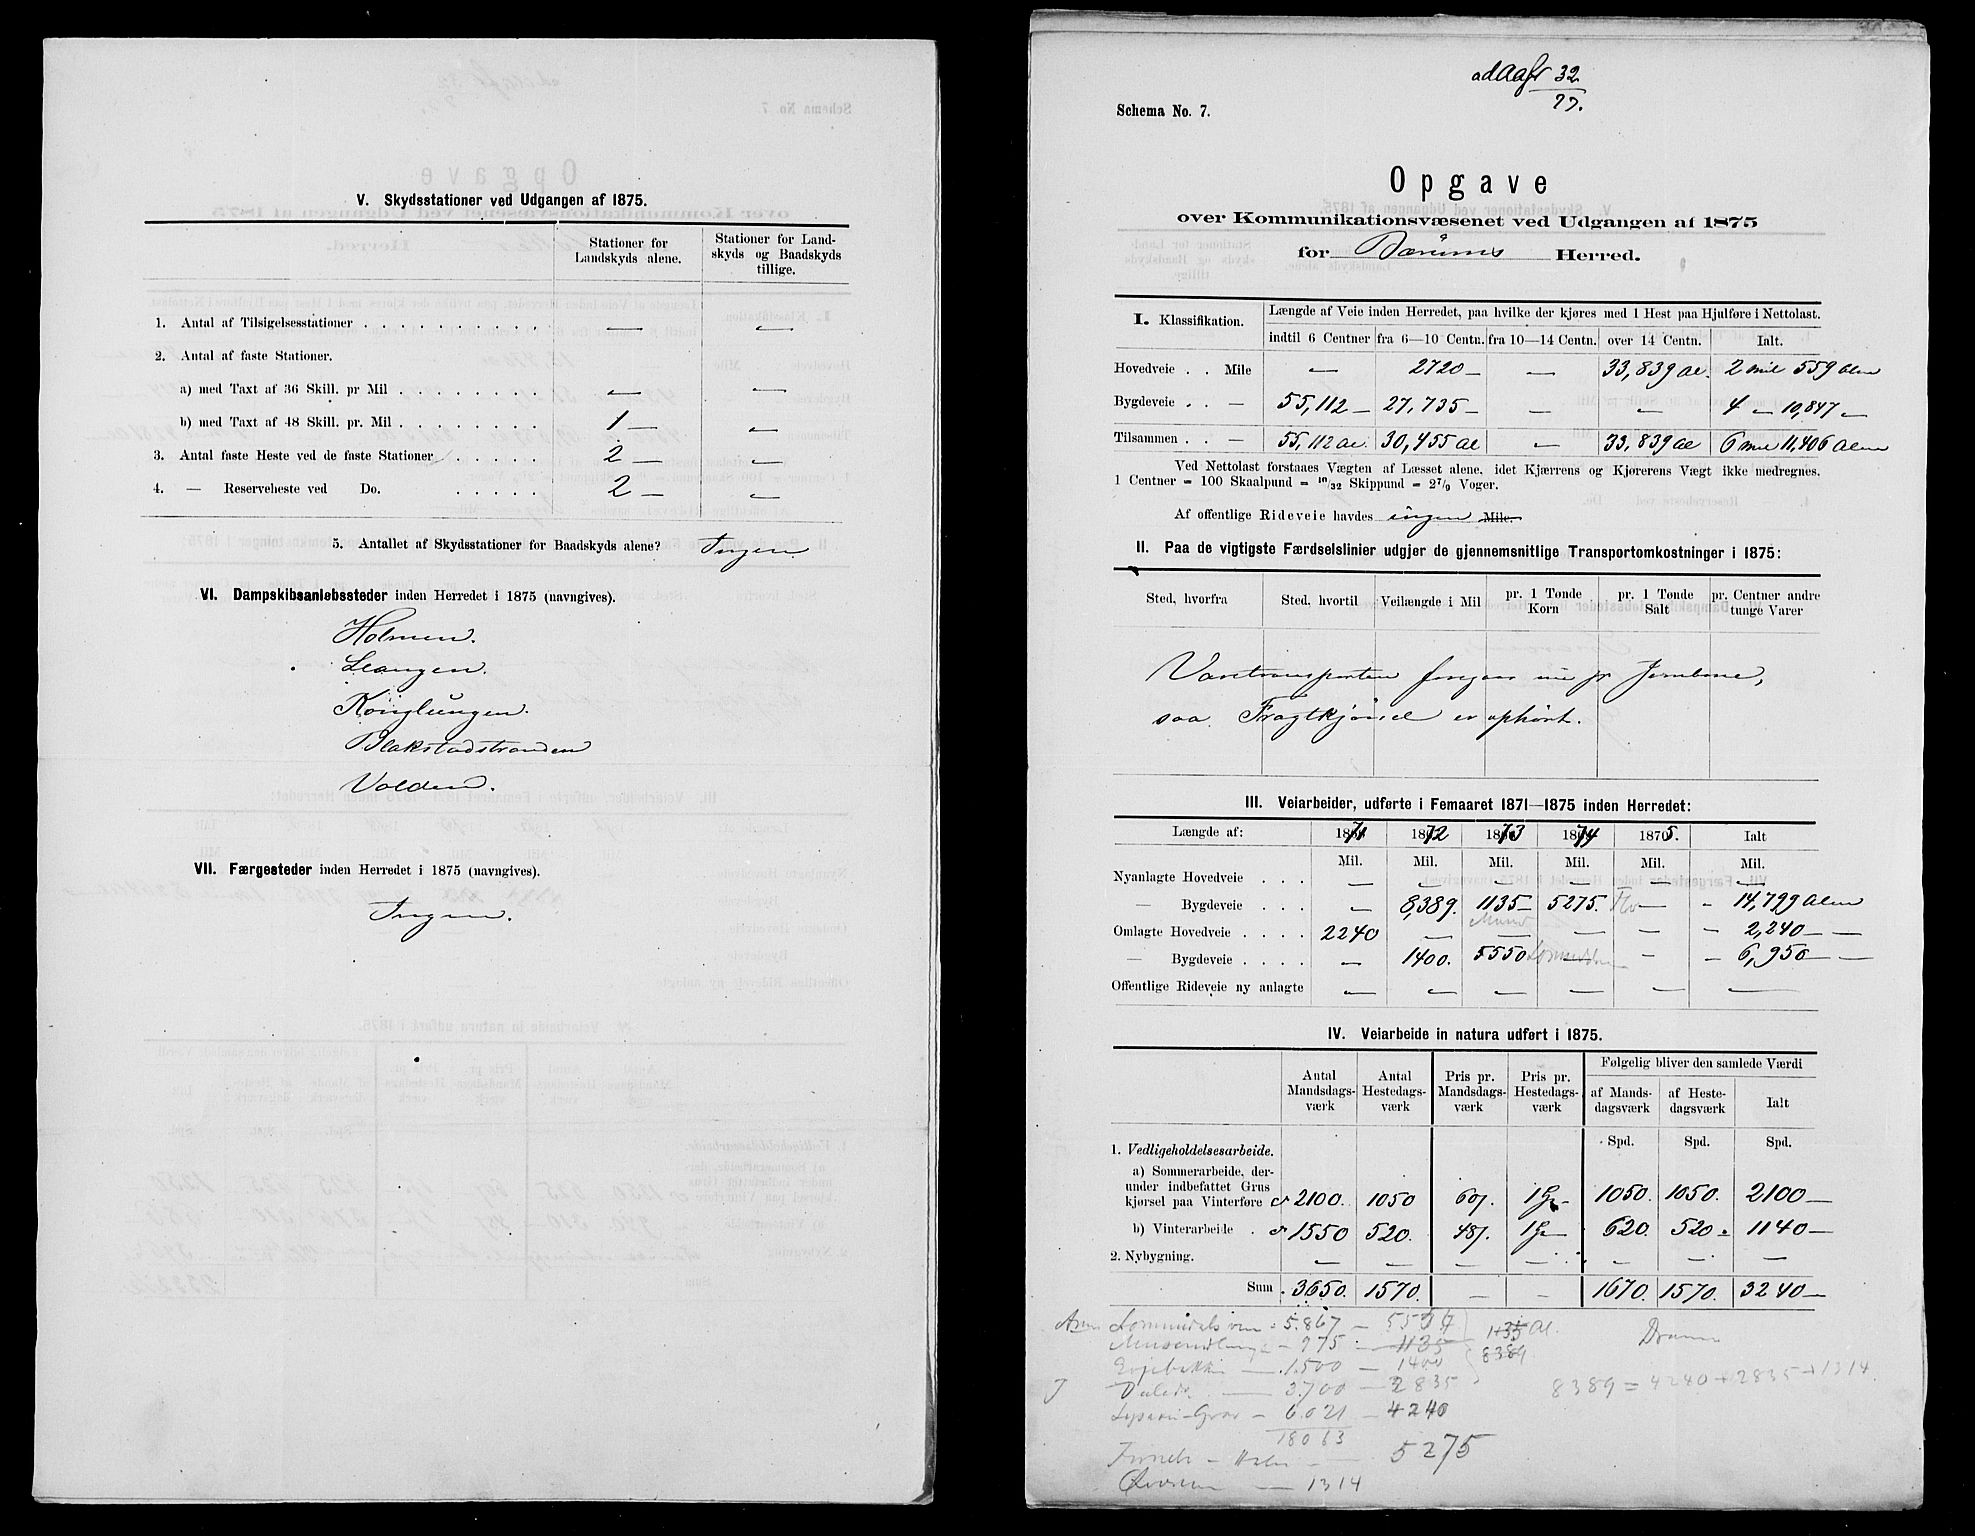 V. Skydsstationer ved Udgangen af 1875.
Stationer for Landskyds alene. | Stationer for Landskyds og Baadskyds tillige.
1. Antal af Tilsigelsesstationer . . . — | —
2. Antal af faste Stationer.
a) med Taxt af 36 Skill. pr Mil . . . — | —
b) med Taxt af 48 Skill. pr. Mil . . . 1 — | —
3. Antal faste Heste ved de faste Stationer . . . 2 — | —
4. — Reserveheste ved Do. . . . 2 — | —
5. Antallet af Skydsstationer for Baadskyds alene? Ingen.
VI. Dampskibsanløbssteder inden Herredet i 1875 (navngives).
Holmen.
Leangen.
Konglungen.
Blakstadstranden
Volden.
VII. Færgesteder inden Herredet i 1875 (navngives).
Ingen.
32
77.
Schema No. 7.
Opgave
over Kommunikationsvæsenet ved Udgangen af 1875
for Bærums Herred.
I. Klassifikation. | Længde af Veie inden Herredet, paa hvilke der kjøres med 1 Hest paa Hjulføre i Nettolast.
indtil 6 Centner | fra 6—10 Centn. | fra 10—14 Centn. | over 14 Centn. | Ialt.
Hovedveie . . Mile | — | 2720 — | — | 33,839 Al. | 2 Mil 559 Alen
Bygdeveie . . — | 55,112 — | 27,735 — | — | — | 4 — 10,847 —
Tilsammen . . — | 55,112 Al. | 30,455 Al | — | 33,839 Al | 6 Mil 11,406 Alen
Ved Nettolast forstaaes Vægten af Læsset alene, idet Kjærrens og Kjørerens Vægt ikke medregnes.
1 Centner = 100 Skaalpund = 10/32 Skippund = 2 7/9 Voger.
Af offentlige Rideveie havdes ingen Mile.
II. Paa de vigtigste Færdselslinier udgjør de gjennemsnitlige Transportomkostninger i 1875:
Sted, hvorfra | Sted, hvortil | Veilængde i Mil | pr. 1 Tønde Korn | pr. 1 Tønde Salt | pr. Centner andre tunge Varer
Varetransporten foregaar nu pr Jernbane,
saa Fragtkjørsel er ophørt.
III. Veiarbeider, udførte i Femaaret 1871—1875 inden Herredet:
Længde af: | 1871 | 1872 | 1873 | 1874 | 1875 | Ialt
Mil. | Mil. | Mil. | Mil. | Mil. | Mil.
Nyanlagte Hovedveie . . . | — | — | — | — | — | —
— Bygdeveie . . . | — | 8,389. | 1135 — | 5275. | — | — 14,799 Alen
Omlagte Hovedveie . . . . | 2240 | — | — | — | — | — 2,240 — —
— Bygdeveie . . . . | — | 1400. | 5550 | — | — | — 6,950 — —
Offentlige Rideveie ny anlagte | — | — | — | — | — | —
IV. Veiarbeide in natura udført i 1875.
Antal Mandsdagsværk | Antal Hestedagsværk | Pris pr. Mandsdagsværk | Pris pr. Hestedagsværk | Følgelig bliver den samlede Værdi
af Mandsdagsværk | af Hestedagsværk | Ialt
Spd. | Spd. | Spd.
1. Vedligeholdelsesarbeide.
a) Sommerarbeide, derunder indbefattet Grus kjørsel paa Vinterføre | 2100. | 1050 | 60 | 1 | 1050. | 1050. | 2100 —
b) Vinterarbeide . | 1550 | 520. | 48 | 1 | 620. | 520 | 1140 —
2. Nybygning. | — | — | — | — | — | — | —
Sum | 3650. | 1570. | — | — | 1670. | 1570. | 3240 —
5.867 —
975 — 1135
1.500 — 1400
8389
3.700 — 2835
8389 = 4240 + 2835 + 1314.
6.021 — 4240
18063
5275
— 1314